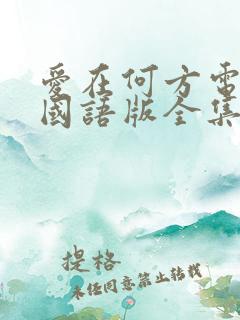 愛在何方電
國語版全集
提格
未经同意禁止转载